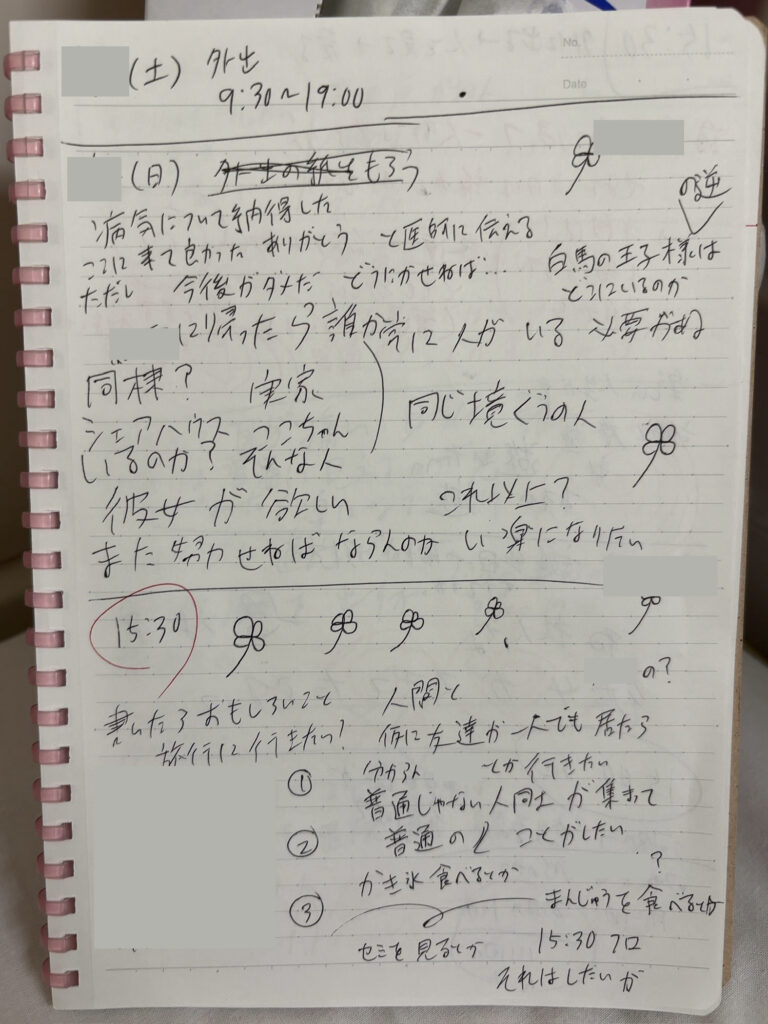 No.
Date
(土) 外出
9:30〜19:00
(日) 外出の紙をもらう
の逆
病気について納得した
ここに来て良かった ありがとう と医師に伝える
ただし 今後がダメだ どうにかせねば…
白馬の王子様は
どこにいるのか
に帰ったら 誰か常に人が いる 必要がある
同棲? 実家
シェアハウス っこちゃん
いるのか? そんな人
同じ境ぐうの人
彼女が欲しい これ以上?
また努力せねばならんのか い 楽になりたい
15:30
の?
書いたらおもしろいこと 人間と
旅行に行きたい? 仮に友達が一人でも居たら
① 分からん とか行きたい
普通じゃない人同士が集まって
② 普通の ことがしたい
かき氷食べるとか ?
③ まんじゅうを食べるとか
セミを見るとか 15:30 フロ
それはしたいが